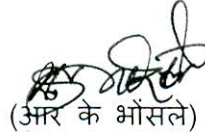 (आर के भोंसले)